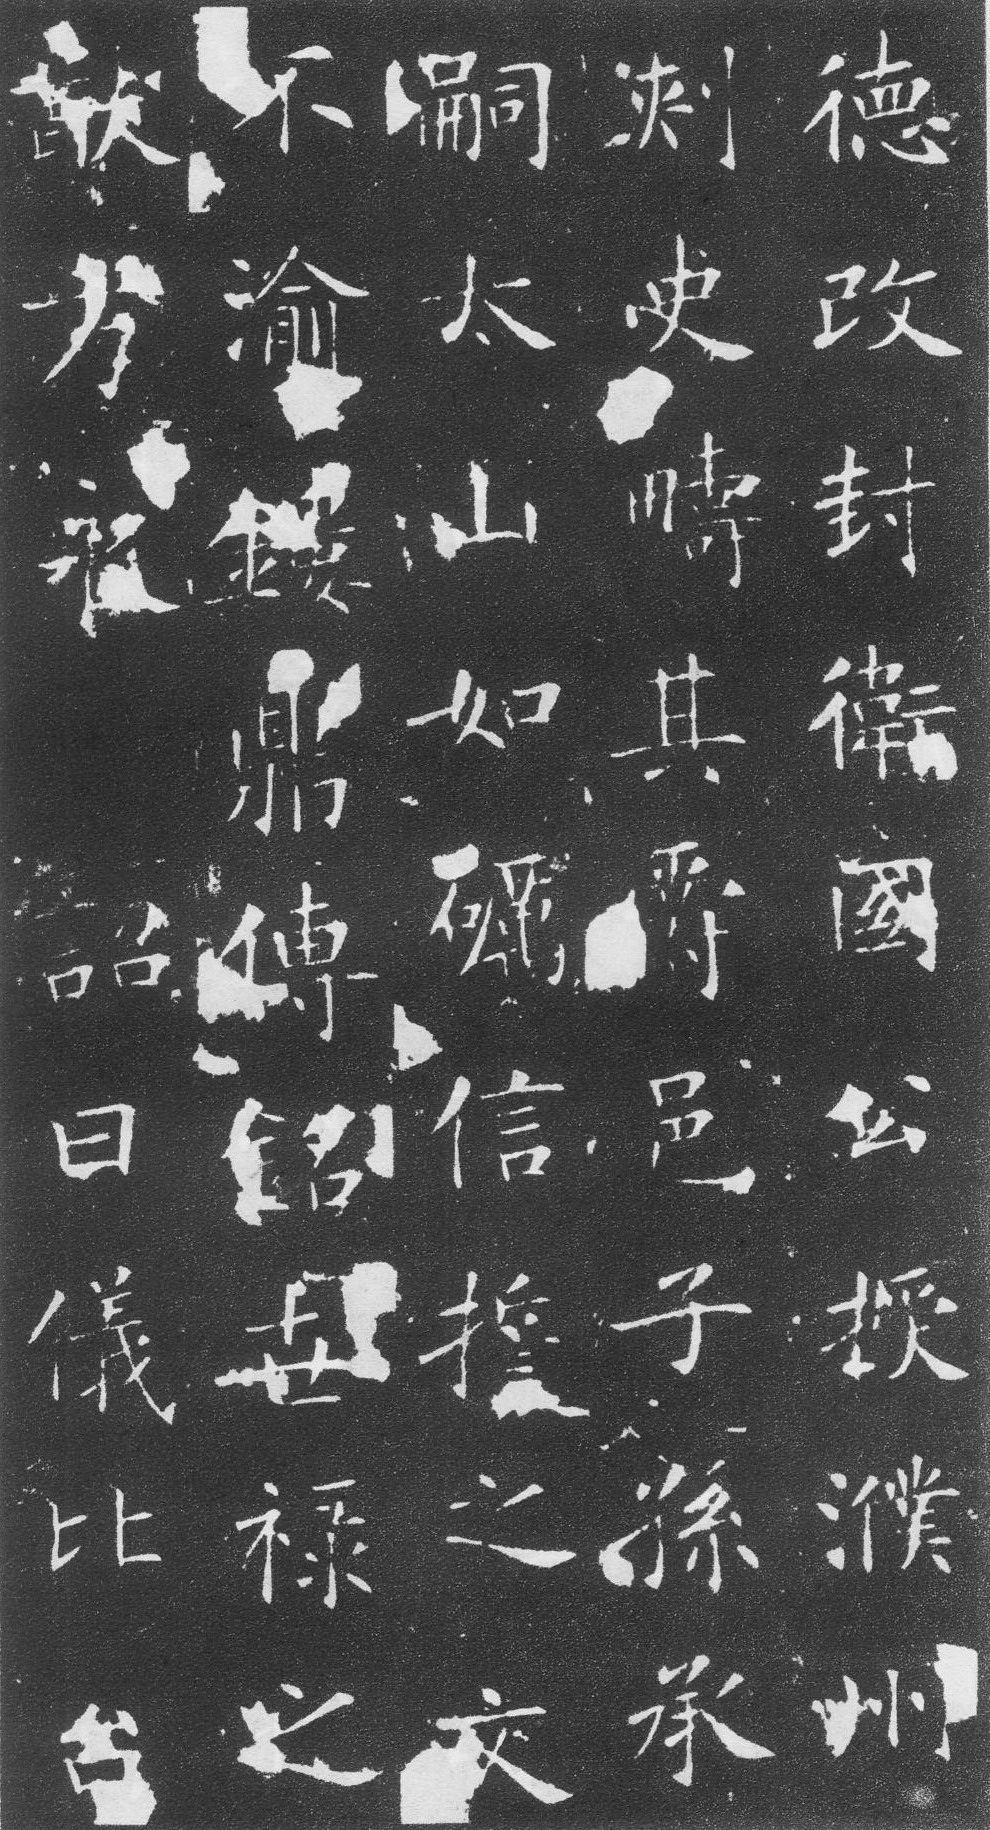 德改封衛國公授濮州
刺史疇其爵邑子孫承
嗣太山如礪信誓之文
不渝鏤鼎傳銘世祿之
猷方永詔曰儀比台